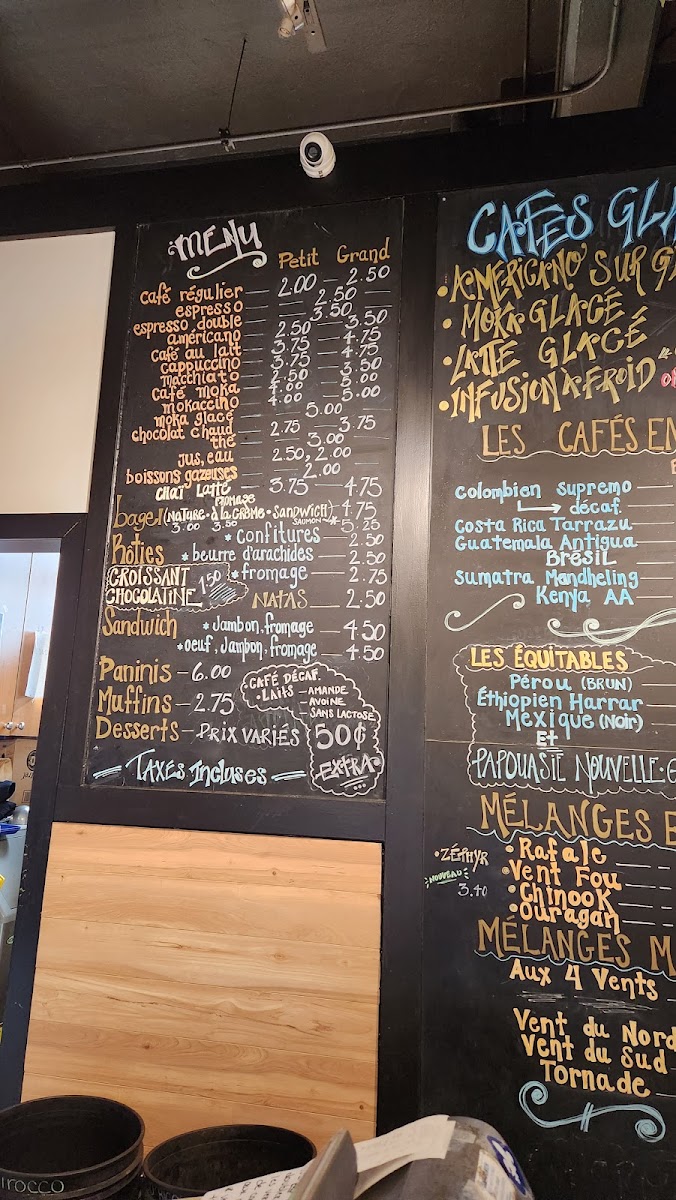 MENU
Petit Grand
café régulier — 2.00 — 2.50
espresso — 2.50 —
espresso double — 3.50 —
américano — 2.50 — 3.50
café au lait — 3.75 — 4.75
cappuccino — 3.75 — 4.75
macchiato — 2.50 — 3.50
café moka — 4.00 — 5.00
mokaccino — 4.00 — 5.00
moka glacé — 5.00 —
chocolat chaud — 2.75 — 3.75
thé — 3.00 —
jus, eau — 2.50, 2.00
boissons gazeuses — 2.00 —
CHAI LATTÉ — 3.75 — 4.75
bagel (NATURE • à LA CRÈME • SANDWICH) 4.75
FROMAGE
3.00 3.50 SAUMON → 5.25
Rôties * confitures — 2.50
* beurre d'arachides — 2.50
* fromage — 2.75
CROISSANT
CHOCOLATINE 1.50
NATAS — 2.50
Sandwich * Jambon, fromage — 4.50
* oeuf, Jambon, fromage — 4.50
Paninis — 6.00
Muffins — 2.75
Desserts — PRIX VARIÉS
• CAFÉ DÉCAF.
• LAITS — AMANDE
— AVOINE
— SANS LACTOSE
50¢
EXTRA
TAXES INCLUSES
CAFÉS
• AMÉRICANO SUR
• MOKA GLACÉ
• LATTÉ GLACÉ
• INFUSION À FROID
LES CAFÉS
Colombien Supremo
décaf.
Costa Rica Tarrazu
Guatemala Antigua
BRESIL
Sumatra Mandheling
Kenya AA
LES ÉQUITABLES
Pérou (BRUN)
Éthiopien Harrar
Mexique (Noir)
ET
PAPOUASIE NOUVELLE
MÉLANGES
• ZÉPHYR
NOUVEAU
3.40
• Rafale
• Vent Fou
• Chinook
• Ouragan
MÉLANGES
Aux 4 Vents
Vent du Nord
Vent du Sud
Tornade